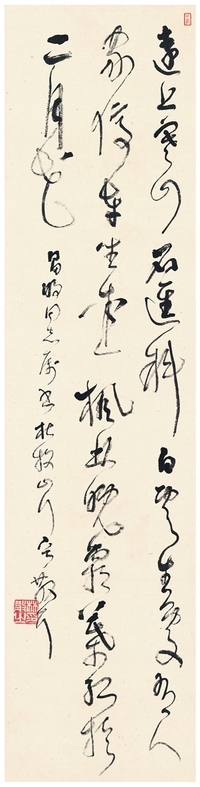 遠上寒山石徑斜白雲生處有人
家停車坐愛楓林晚霜葉紅於
二月花
昌同志屬書杜牧山行 散耳